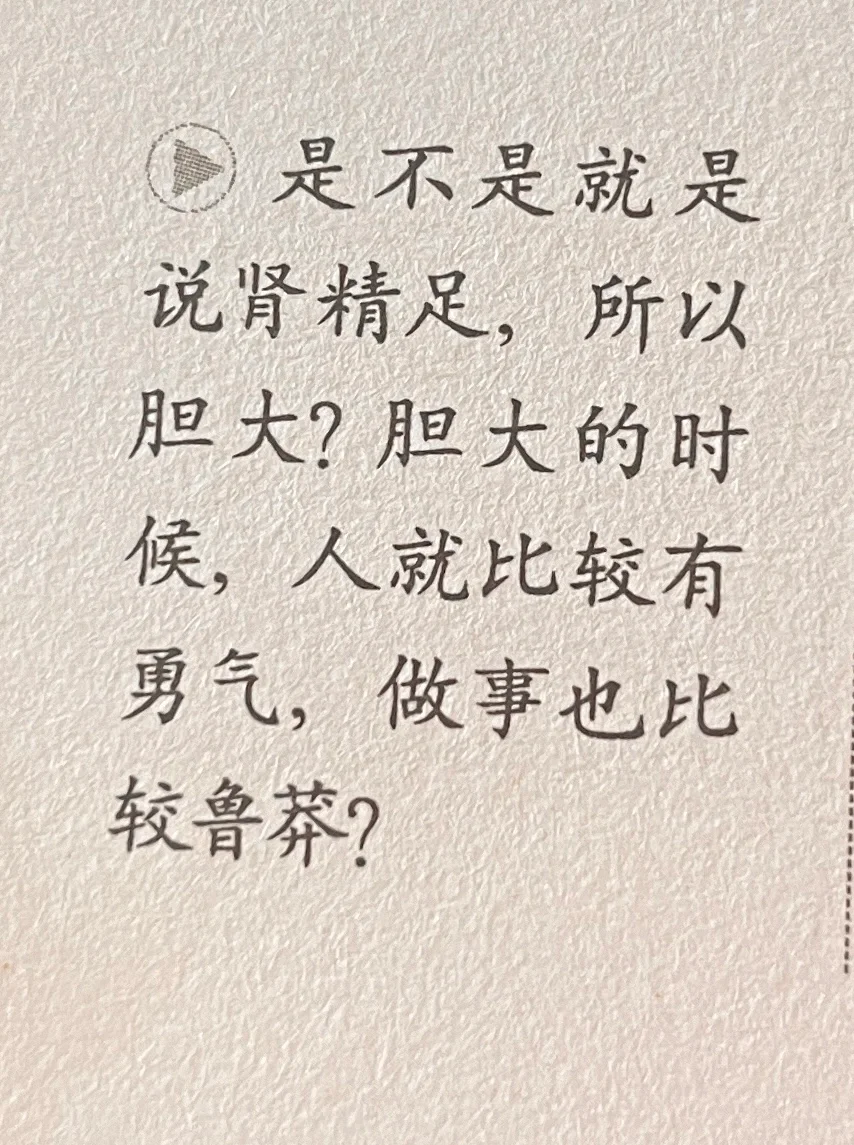 是不是就是
说肾精足，所以
胆大？胆大的时
候，人就比较有
勇气，做事也比
较鲁莽？